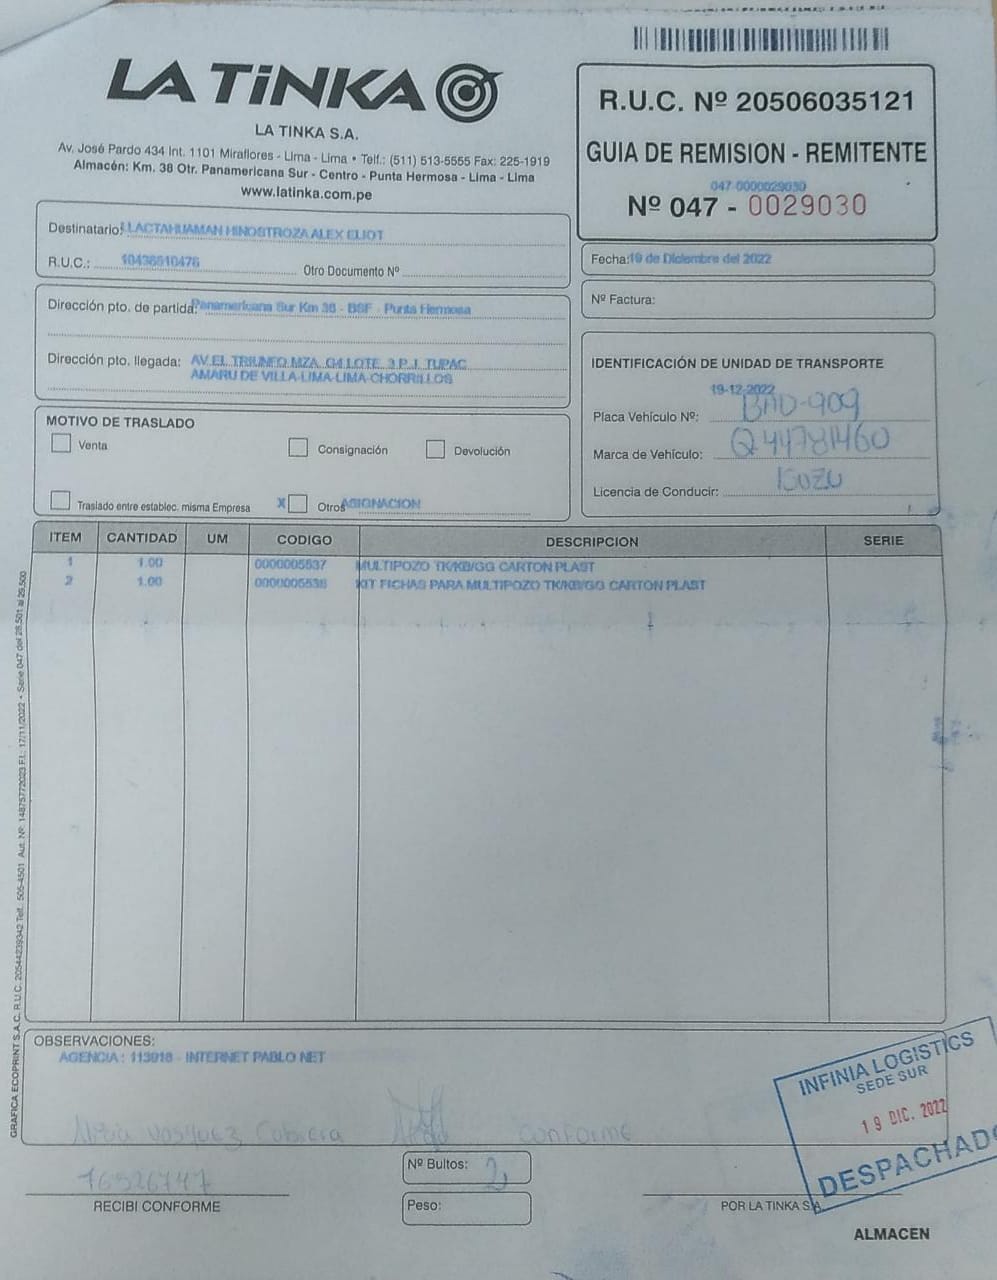 LA TiNKA
LA TINKA S.A.
Av. José Pardo 434 Int. 1101 Miraflores - Lima - Lima • Telf.: (511) 513-5555 Fax: 225-1919
Almacén: Km. 38 Otr. Panamericana Sur - Centro - Punta Hermosa - Lima - Lima
www.latinka.com.pe
R.U.C. Nº 20506035121
GUIA DE REMISION - REMITENTE
047-0000029030
Nº 047 - 0029030
Destinatario: LLACTAHUAMAN HINOSTROZA ALEX ELIOT
R.U.C.: 10436810476 Otro Documento Nº
Fecha: 19 de Diciembre del 2022
Nº Factura:
Dirección pto. de partida: Panamericana Sur Km 38 - BSF - Punta Hermosa
Dirección pto. llegada: AV.EL TRIUNFO MZA. G4 LOTE. 3 P.J. TUPAC
AMARU DE VILLA-LIMA-LIMA-CHORRILLOS
IDENTIFICACIÓN DE UNIDAD DE TRANSPORTE
19-12-2022
Placa Vehículo Nº: BAD-909
Marca de Vehículo: Q44781460
Licencia de Conducir: ISUZU
MOTIVO DE TRASLADO
Venta
Consignación
Devolución
Traslado entre establec. misma Empresa
X Otros ASIGNACION
ITEM CANTIDAD UM CODIGO DESCRIPCION SERIE
1 1.00 0000005537 MULTIPOZO TK/KB/GG CARTON PLAST
2 1.00 0000005538 KIT FICHAS PARA MULTIPOZO TK/KB/GG CARTON PLAST
GRAFICA ECOPRINT S.A.C. R.U.C. 20544239342 Telf.: 505-4501 Aut. Nº. 14875772023 F.I.: 17/11/2022 • Serie 047 del 28,501 al 29,500
OBSERVACIONES:
AGENCIA : 113918 - INTERNET PABLO NET
Vasquez Cabrera conforme
76526747
RECIBI CONFORME
Nº Bultos: 2
Peso:
POR LA TINKA S.A.
INFINIA LOGISTICS
SEDE SUR
19 DIC. 2022
DESPACHADO
ALMACEN